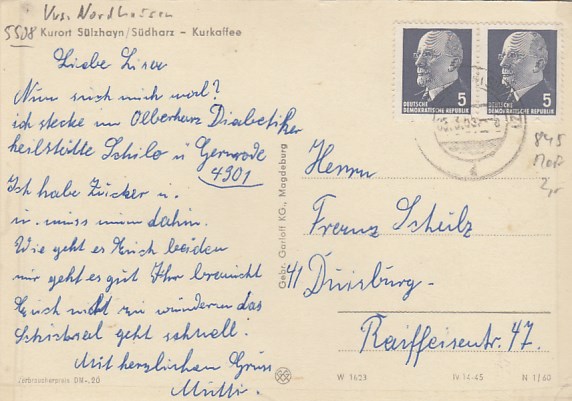 Krs. Nordhausen
5508 Kurort Sülzhayn/Südharz - Kurkaffee
Liebe Lisa
Nun such mich mal?
ich stecke im Olberharz Diabetiker
heilstätte Schilo ü Gernrode
4301
Ich habe Zucker u.
u. muss nun dahin.
Wie geht es Euch beiden
mir geht es gut Ihr braucht
Euch nicht zu wundern das
Schicksal geht schnell.
Mit herzlichen Gruss
Mutti.
Verbraucherpreis DM -,20
Gebr. Garloff KG., Magdeburg
5
DEUTSCHE
DEMOKRATISCHE REPUBLIK
5
DEUTSCHE
DEMOKRATISCHE REPUBLIK
845
Herrn
Franz Scheilz
41 Duisburg-
Raiffeisenstr. 47.
W 1623
IV-14-45
N 1/60